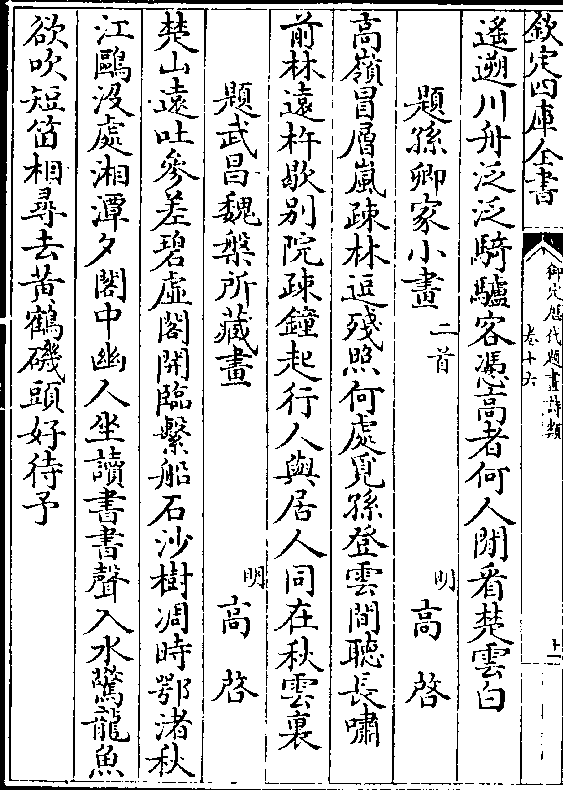 欽定四庫全書
御定歷代題畫詩類
卷十六
十一
遥遡川舟泛泛騎驢客憑高者何人閒看楚雲白
題孫卿家小畫二首 明 高啓
高嶺冒層嵐疎林逗殘照何處覓孫登雲間聽長嘯
前林遠杵歇别院疎鐘起行人與居人同在秋雲裏
題武昌魏槃所藏畫 明 高啓
楚山遠吐參差碧虚閣開臨繫船石沙樹凋時鄂渚秋
江鷗没處湘潭夕閣中幽人坐讀書書聲入水驚龍魚
欲吹短笛相尋去黄鶴磯頭好待予